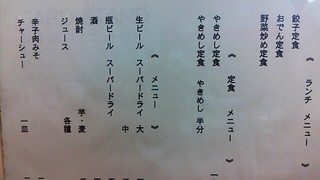 《 ランチ メニュー 》
餃子定食
おでん定食
野菜炒め定食
《 定食 メニュー 》
やきめし定食
やきめし定食 やきめし 半分
《 メニュー 》
生ビール スーパードライ 大
中
瓶ビール スーパードライ
酒
焼酎 芋・麦
ジュース 各種
辛子肉みそ
チャーシュー 一皿